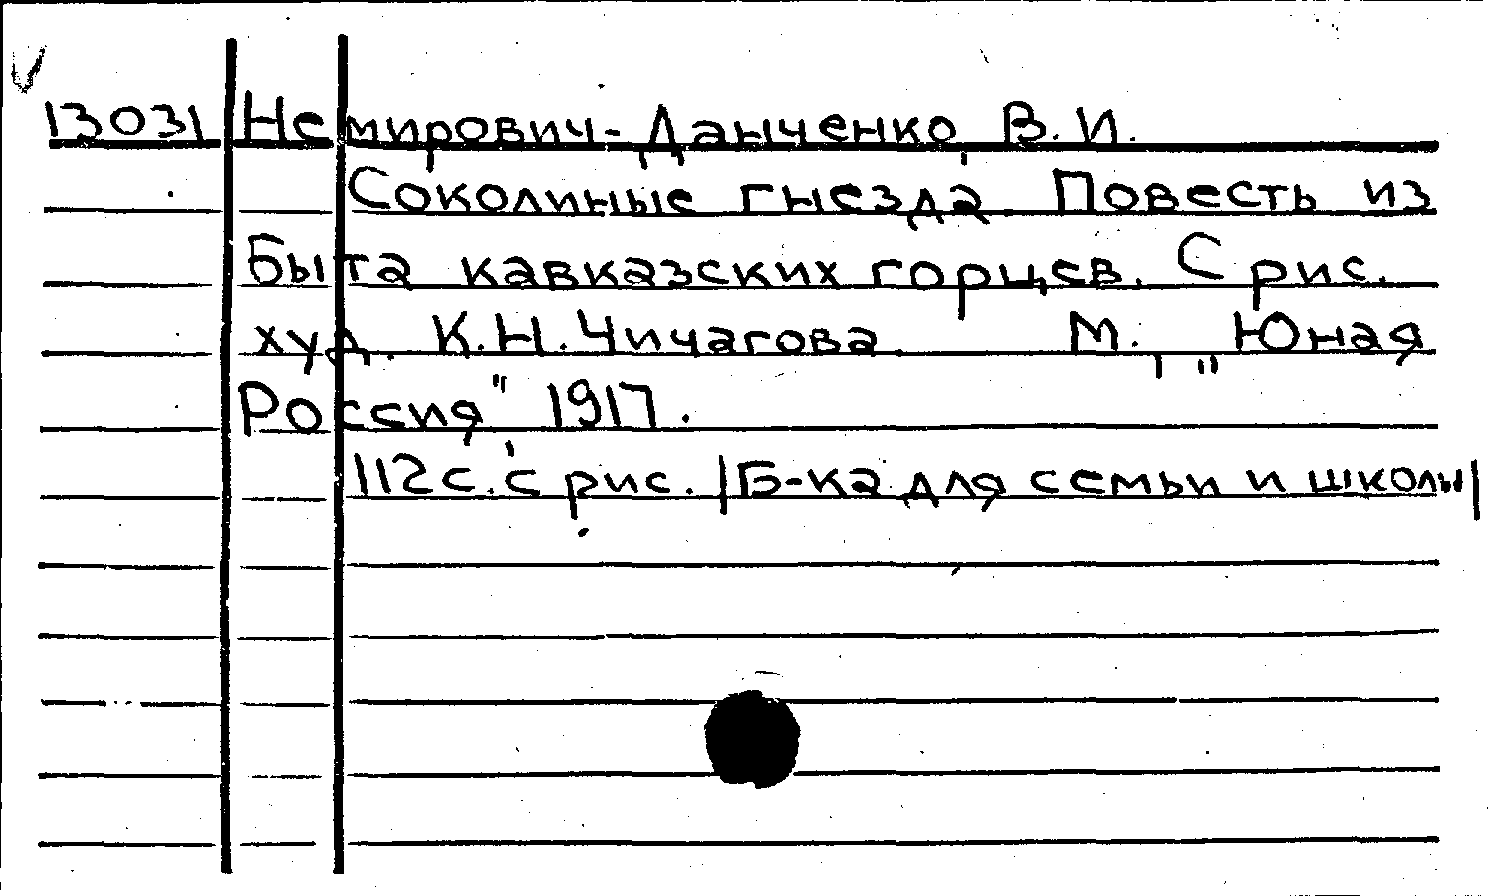 13031 Немирович-Данченко, В.И.
Соколиные гнезда. Повесть из
быта кавказских горцев. С рис.
худ. К.Н. Чичагова. М., "Юная
Россия", 1917.
112с. с рис. |Б-ка для семьи и школы|